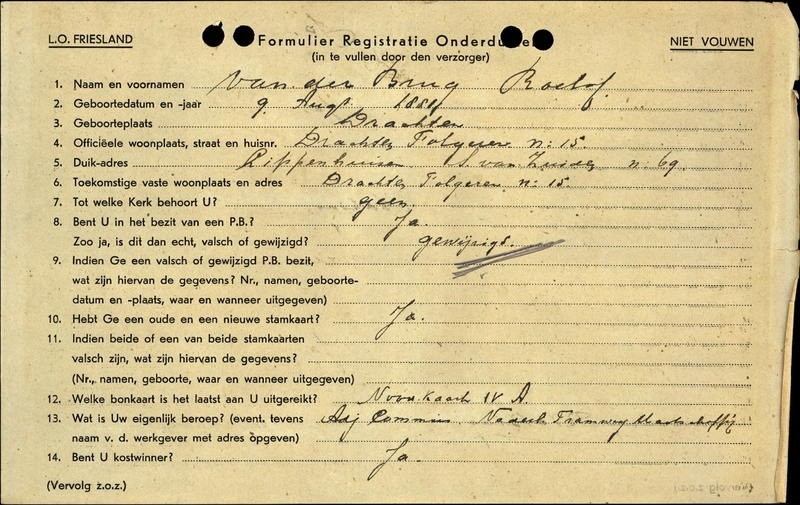 L.O. FRIESLAND
Formulier Registratie Onderdu
NIET VOUWEN
(in te vullen door den verzorger)
1. Naam en voornamen van der Brug Roelof
2. Geboortedatum en -jaar 9 Augt.
3. Geboorteplaats Drachten
4. Officiëele woonplaats, straat en huisnr. Drachten Folgeren n: 15.
5. Duik-adres n: 69.
6. Toekomstige vaste woonplaats en adres Drachten Folgeren n: 15
7. Tot welke Kerk behoort U? geen
8. Bent U in het bezit van een P.B.? Ja
Zoo ja, is dit dan echt, valsch of gewijzigd? gewijzigd.
9. Indien Ge een valsch of gewijzigd P.B. bezit,
wat zijn hiervan de gegevens? Nr., namen, geboorte-
datum en -plaats, waar en wanneer uitgegeven)
10. Hebt Ge een oude en een nieuwe stamkaart? Ja.
11. Indien beide of een van beide stamkaarten
valsch zijn, wat zijn hiervan de gegevens?
(Nr., namen, geboorte, waar en wanneer uitgegeven)
12. Welke bonkaart is het laatst aan U uitgereikt? Noodkaart IV A
13. Wat is Uw eigenlijk beroep? (event. tevens Adj Commies Tramweg Maatschappij
naam v. d. werkgever met adres opgeven)
14. Bent U kostwinner? Ja.
(Vervolg z.o.z.)